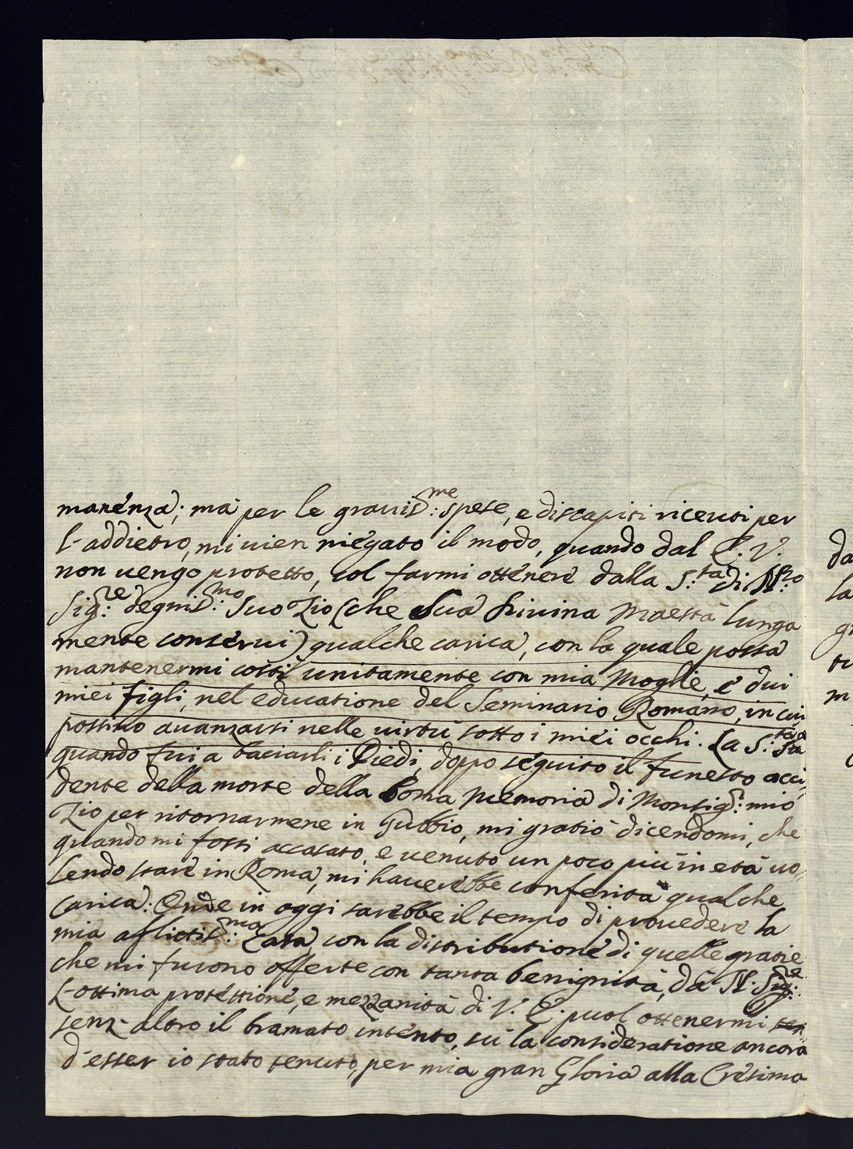 manenza; mà per le grauis:me spese, e discapiti riceuti per
l'addietro, mi uien niegato il modo, quando dal E. V.
non uengo protetto, col farmi ottenere dalla S:tà di N:ro
Sig:re degnis:mo Suo Zio (che Sua Diuina Maestà lunga
mente conserui) qualche carica, con la quale possa
mantenermi costì unitamente con mia Moglie, e dui
miei figli, nel educatione del Seminario Romano, in cui
possino auanzarsi nelle uirtù sotto i miei occhi. La S:tà Sta
quando fui a baciarli i Piedi, doppo seguito il funesto acci,
dente della morte della bona memoria di Monsig:r mio
Zio per ritornarmene in Gubbio, mi gratiò dicendomi, che
quando mi fossi accasato, e uenuto un poco più in età uo,
lendo stare in Roma, mi hauerebbe conferita qualche
carica: Onde in oggi sarebbe il tempo di prouedere la
mia aflictis:ma Casa con la distributione di quelle gratie
che mi furono offerte con tanta benignità, dà N. Sig:re
L'ottima protettione, e mezzanità di V. E. puol ottenermi
senz'altro il bramato intento, sù la consideratione ancora
d'esser io stato tenuto, per mia gran Gloria alla Cresima